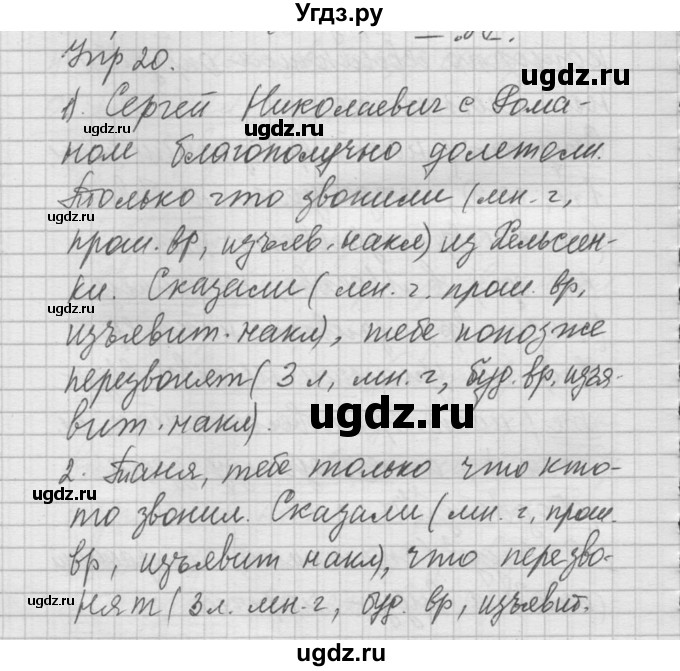 Угдз.ру
Упр 20.
1). Сергей Николаевич с Рома-
ном благополучно долетели.
Только что звонили (мн. ч,
прош. вр, изъяв. накл) из Хельсин-
ки. Сказали (мн. ч. прош. вр,
изъявит. накл), тебе попозже
перезвонят (3 л, мн. ч, буд. вр, изъя-
вит. накл).
2. Таня, тебе только что кто-
то звонил. Сказали (мн. ч, прош.
вр, изъявит накл), что перезво-
нят (3 л. мн. ч, буд. вр, изъявит.
ugdz.ru
ugdz.ru
ugdz.ru
ugdz.ru
ugdz.ru
ugdz.ru
ugdz.ru
ugdz.ru
ugdz.ru
ugdz.ru
ugdz.ru
ugdz.ru
ugdz.ru